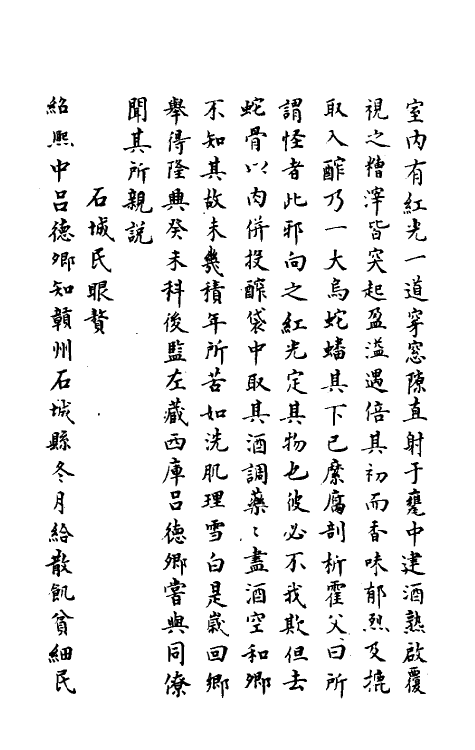 室內有紅光一道穿窓隙直射于甕中逮酒熟啟覆
視之糟滓皆突起盈溢過倍其初而香味郁烈及摝
取入醡乃一大烏蛇蟠其下已糜腐剖析霍父曰所
謂怪者此邪向之紅光定其物也彼必不我欺但去
蛇骨以肉併投醡袋中取其酒調藥〻盡酒空和卿
不知其故未幾積年所苦如洗肌理雪白是嵗回鄉
舉得隆興癸未科後監左藏西庫呂德卿嘗與同僚
聞其所親說
石城民眼贅
紹熙中呂德卿知贛州石城縣冬月給散飢貧細民